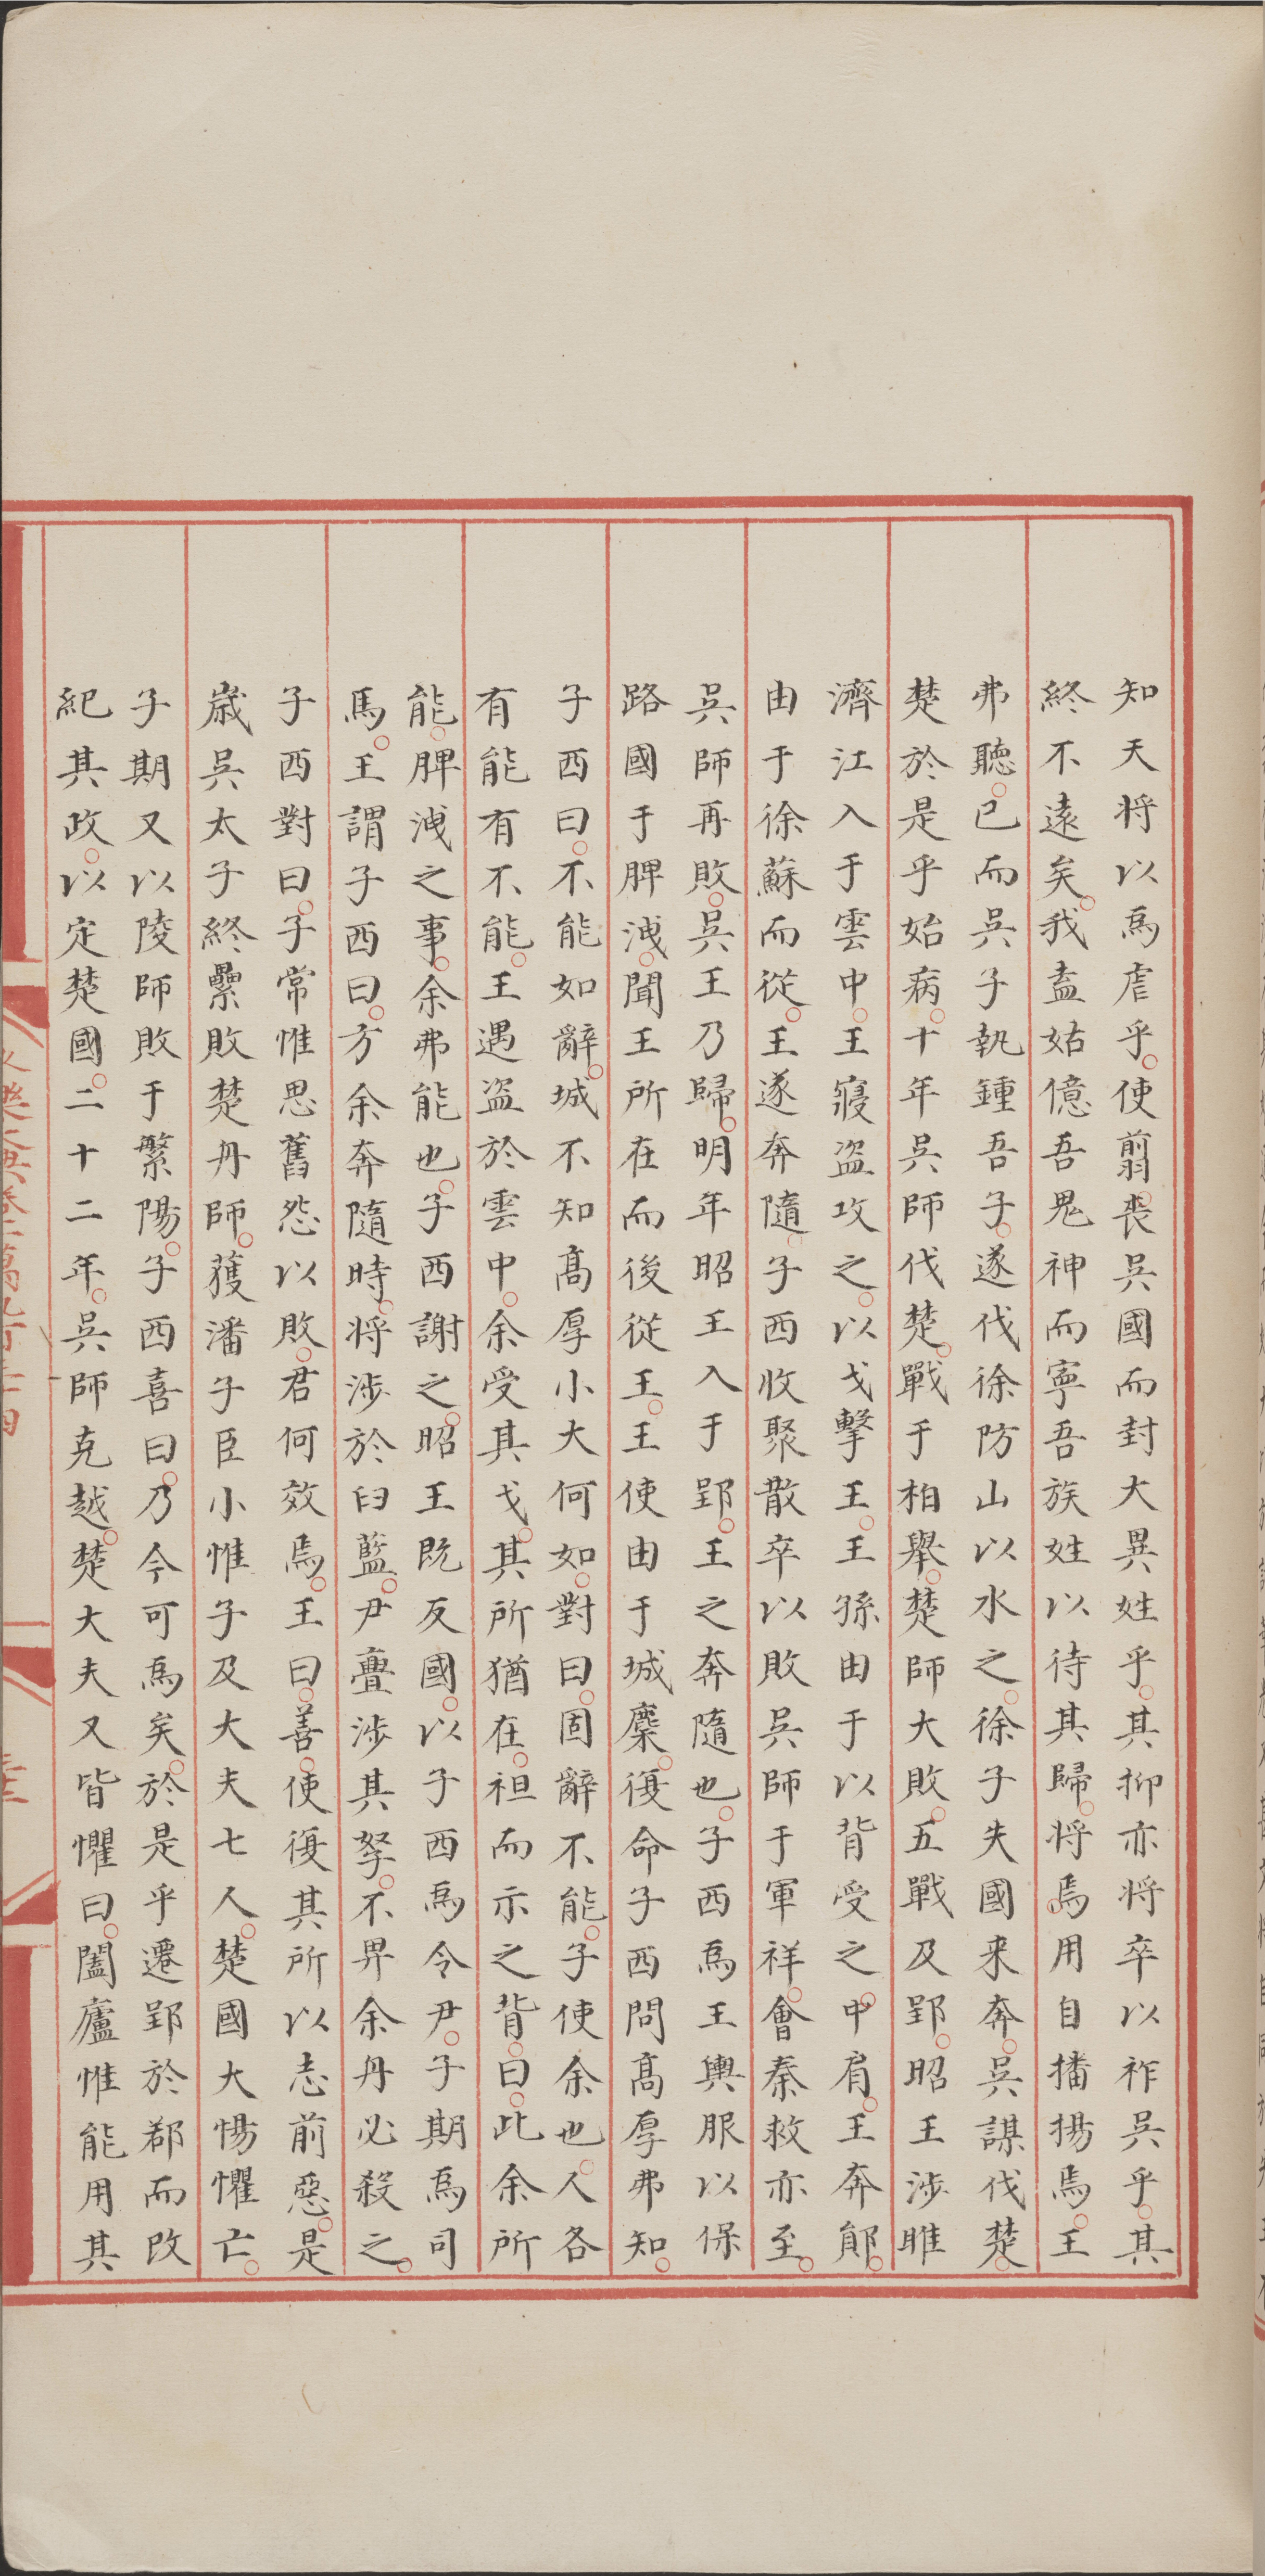 知天将以為虐乎使翦喪吳國而封大異姓乎其抑亦将卒以祚吳乎其
終不遠矣我盍姑億吾鬼神而寧吾族姓以待其歸将焉用自播揚焉王
弗聽已而吳子執鍾吾子遂伐徐防山以水之徐子失國来奔吳謀伐楚
楚於是乎始病十年吳師伐楚戰于柏舉楚師大敗五戰及郢昭王涉睢
濟江入于雲中王寢盜攻之以戈擊王王孫由于以背受之中肩王奔鄖
由于徐蘇而從王遂奔隨子西收聚散卒以敗吳師于軍祥會秦救亦至
吳師再敗吳王乃歸明年昭王入于郢王之奔隨也子西為王輿服以保
路國于脾洩聞王所在而後從王王使由于城麇復命子西問高厚弗知
子西曰不能如辭城不知高厚小大何如對曰固辭不能子使余也人各
有能有不能王遇盜於雲中余受其戈其所猶在袒而示之背曰此余所
能脾洩之事余弗能也子西謝之昭王既反國以子西為令尹子期為司
馬王謂子西曰方余奔隨時将涉於臼藍尹亹涉其孥不畀余舟必殺之
子西對曰子常惟思舊怨以敗君何效焉王曰善使復其所以志前惡是
嵗吳太子終纍敗楚舟師獲潘子臣小惟子及大夫七人楚國大惕懼亡
子期又以陵師敗于繁陽子西喜曰乃今可為矣於是乎遷郢於鄀而改
紀其政以定楚國二十二年吳師克越楚大夫又皆懼曰闔廬惟能用其